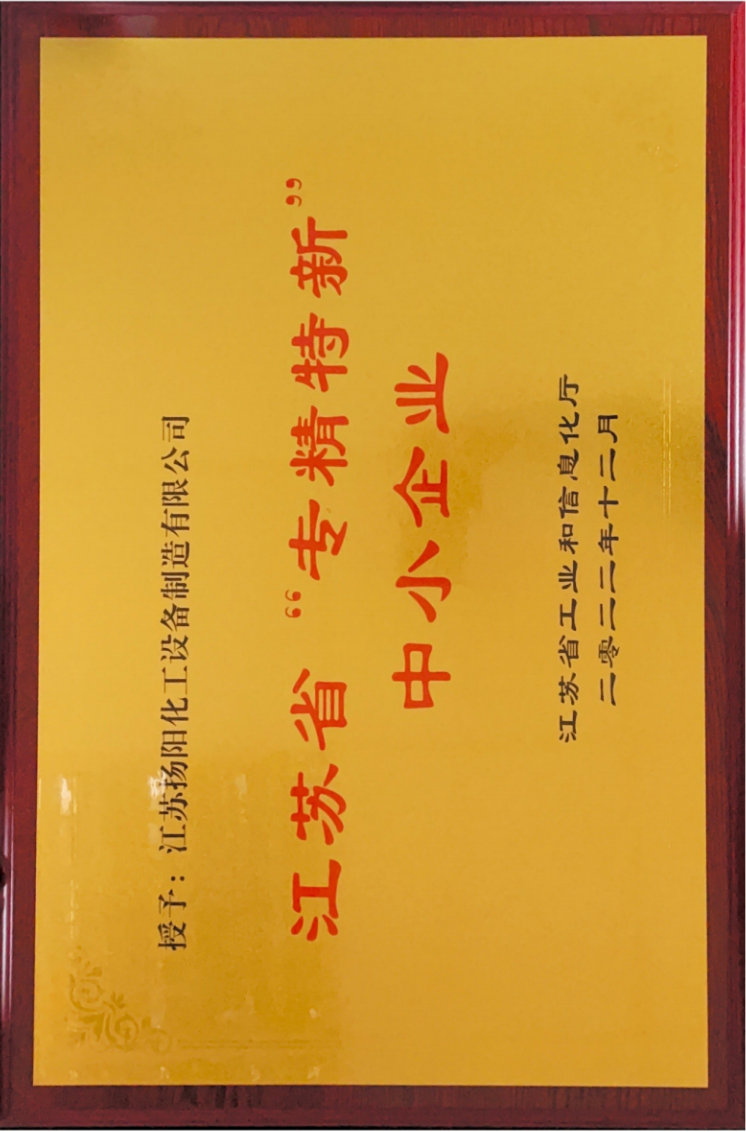 授予：江苏扬阳化工设备制造有限公司
江苏省“专精特新”
中小企业
江苏省工业和信息化厅
二零二二年十二月